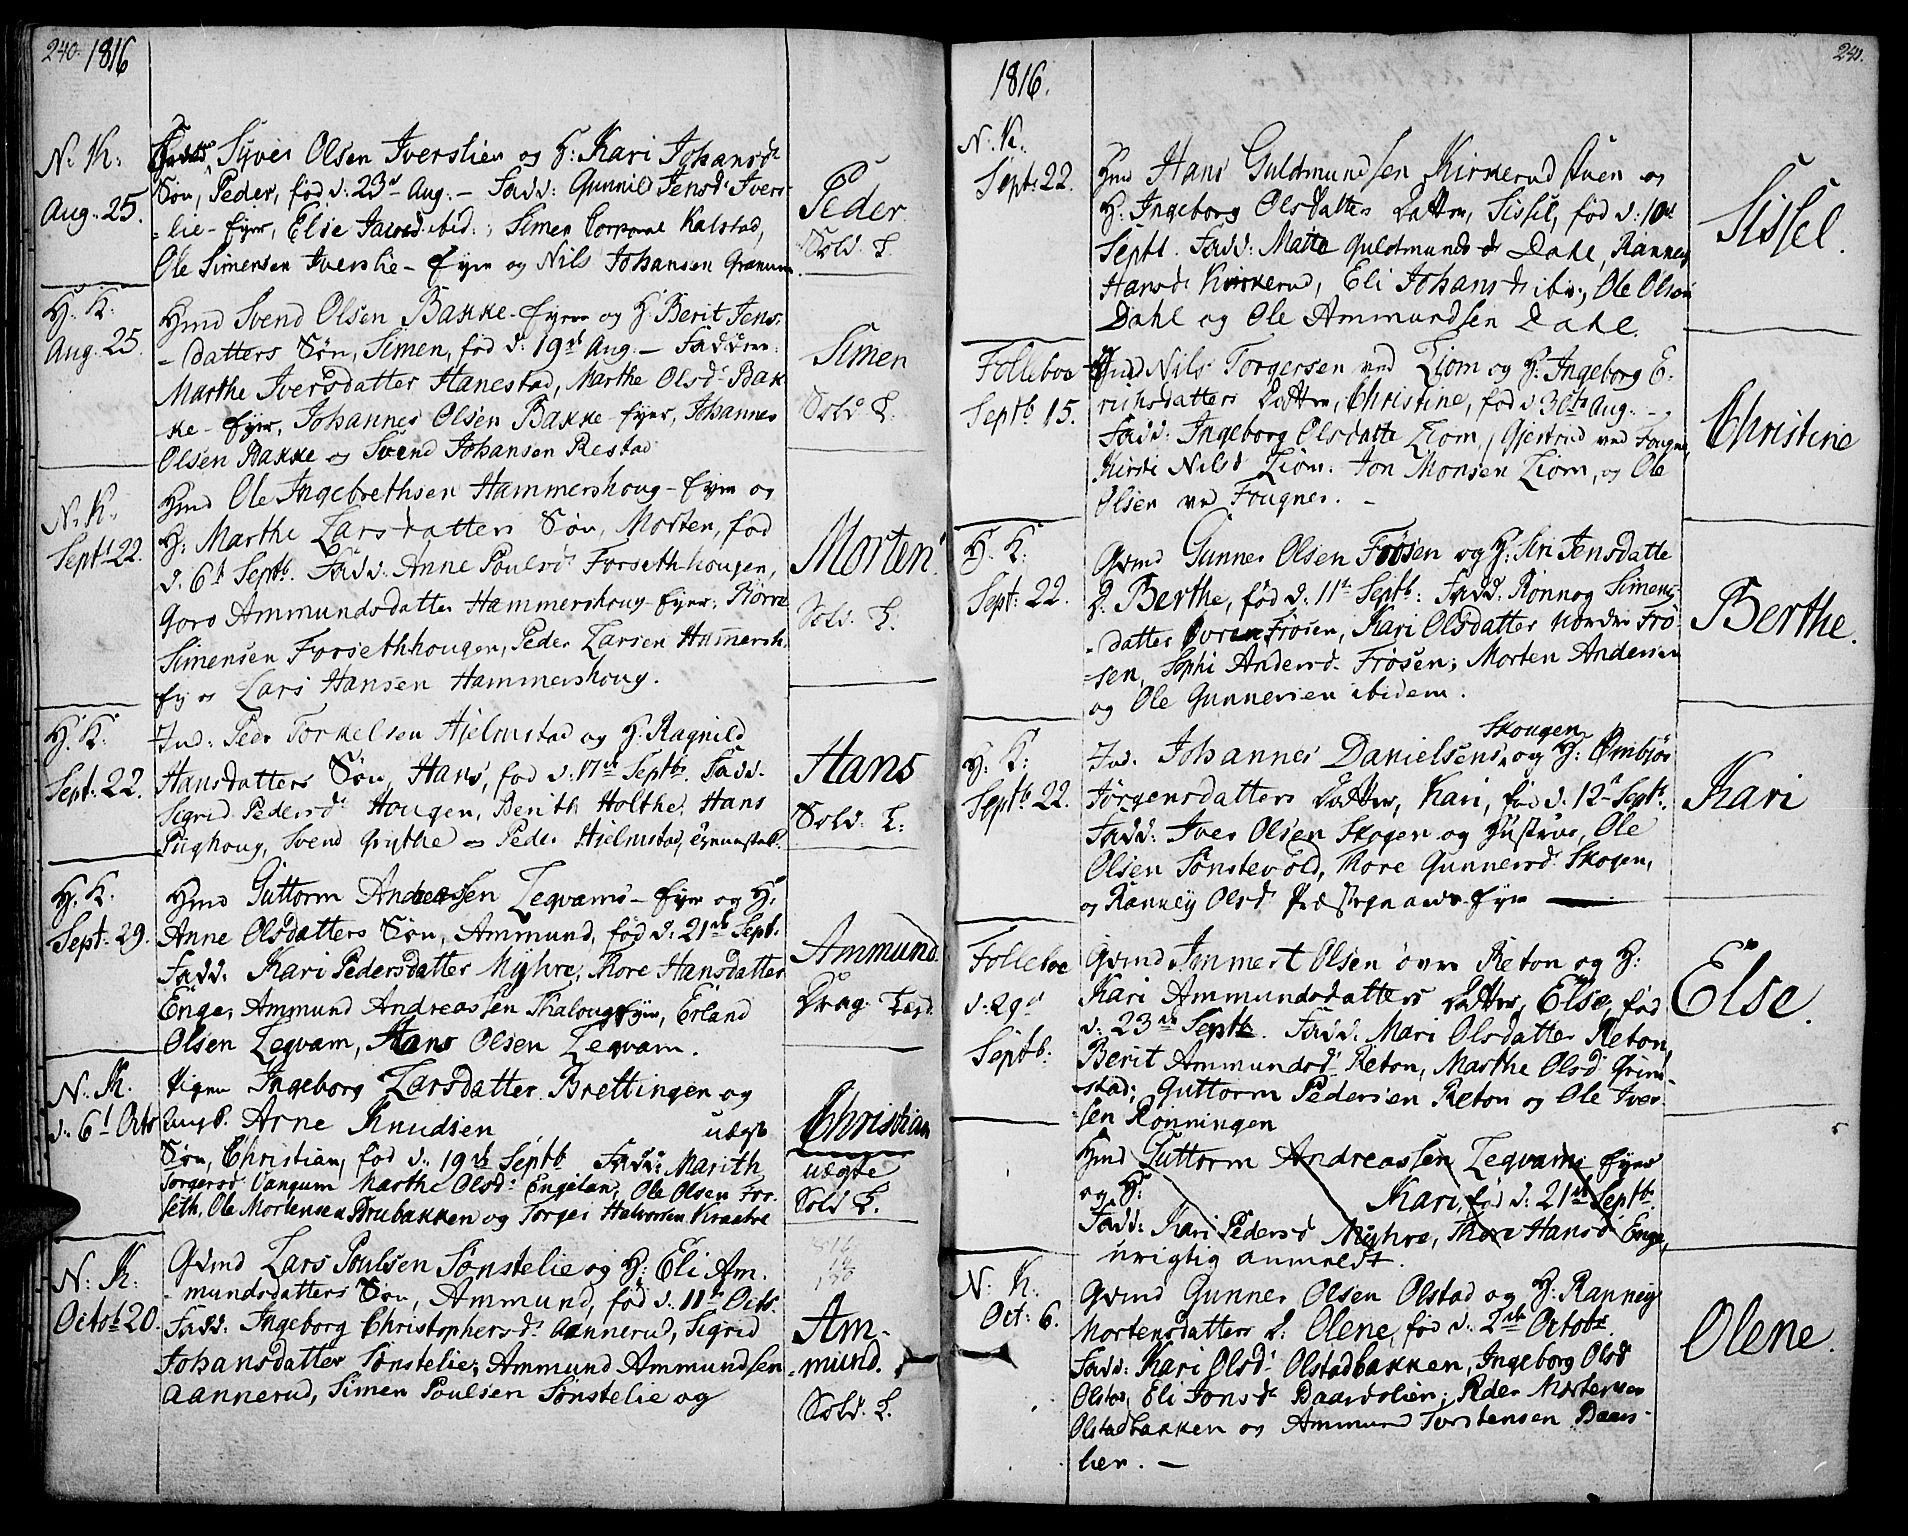 240. 1816
N. K:
Aug. 25.
Syver Olsen Iverslien og H: Kari Johansd:
Søn, Peder, fød d: 23d Aug. - Fadd: Gunnild Jensd: Ivers-
-lie-Eyer, Else ibid:, Simen Corporal Kalstad,
Ole Simensen Iverslie-Eyer og Nils Johansen Granum.
Peder.
Sold. L.
H. K:
Aug. 25.
Hmd Svend Olsen Bakke-Eyer og H: Berit Jens-
-datters Søn, Simen, fød d: 19d Aug. - Faddere
Marthe Iversdatter Hanestad, Marthe Olsd: Bak-
ke-Eyer, Johannes Olsen Bakke-Eyer, Johannes
Olsen Bakke og Svend Johansen Restad
Simen
Sold L.
N. K.
Sept: 22.
Hmd Ole Ingebrethsen Hammershoug-Eyer og
H: Marthe Larsdatters Søn, Morten, fød
d. 6t Septb. Fadd. Anne Poulsd: Forseth-hougen,
Goro Ammundsdatter Hammershoug-Eyer,
Simensen Forsethhougen, Peder Larsen Hammersh.
Ey og Lars Hansen Hammershoug.
Morten
Sold. L.
H. K:
Sept: 22.
Ind: Peder Torkelsen Hjelmstad og H. Ragnild
Hansdatters Søn, Hans, fød d: 17d Septb. Fadd.
Sigrid Pedersd: Hougen, Berith Holthe, Hans
Pighoug, Svend Grythe og Peder Hjelmstad,
Hans
Sold: L:
H. K:
Sept: 29.
Hmd Guttorm Andreassen Leqvams-Eyer og H:
Anne Olsdatters Søn, Ammund, fød d: 21de Sept.
Fadd: Kari Pedersdatter Myhre, Thore Hansdatter
Enge, Ammund Andreassen Eyer, Erland
Olsen Leqvam, Hans Olsen Leqvam.
Ammund.
Drag:
N. K.
d. 6t Octo
Pigen Ingeborg Larsdatter Brettingen og
Ungk. Arne Knudsen uægt
Søn, Christian, fød d. 19de Septb Fadd: Marith
Torgersd Vangum Marthe Olsd: Engelan, Ole Olsen For-
seth, Ole Mortensen Brubakken og Torger Halvorsen Kraabye
Christian
uægte
Sold L.
N: K.
Octob 20.
Gvmd Lars Poulsen Sønstelie og H: Eli Am-
-mundsdatters Søn, Ammund, fød d. 11te Octb.
Fadd: Ingeborg Christophersd: Aannerud, Sigrid
Johansdatter Sønstelie, Ammund Ammundsen
Aannerud, Simen Poulsen Sønstelie og
Am-
-mund.
Sold. L.
1816. 241.
N. K.
Sept: 22.
Hmd Hans Guldmundsen Kirkerudstuen og
H: Ingeborg Olsdatters Datter, Sissel, fød d: 10d
Septb. Fadd: Matte Guldmundsdr Dahl, Ranney
Hansd: Kirkerud, Eli Johansd: ibid, Ole Olsen
Dahl og Ole Ammundsen Dahl.
Sissel.
Folleboe
Septb 15.
Ind Nils Torgersen ved Liom og H: Ingeborg E-
richsdatters Datter, Christine, fød d 30te Aug. -
Fadd: Ingeborg Olsdatter Liom, Gjertrud ved Fougner,
Kirsti Nilsd Liom. Jon Monsen Liom, og Ole
Olsen ved Fougner. -
Christine
H. K:
Sept: 22.
Gvmd Gunner Olsen Frøsen og H: Siri Jensdatte
D. Berthe, fød d. 11te Septb: Fadd: Rønnog Simens-
-datter Øvren Frøsen, Kari Olsdatter nordre Frø-
-sen, Sophi Andersd- Frøsen; Morten Andersen
og Ole Gunnersen ibidem.
Berthe.
H. K:
Septb 22.
Skougen
Ind. Johannes Danielsens og H: Ømbjør
Jørgensdatters Datter, Kari, fød d. 12te Septb.
Fadd: Iver Olsen Skogen og Hustrue, Ole
Olsen Sønstevold, Thore Gunnersd: Skogen,
og Ranney Olsd: Præstegaards-Eyer
Kari
Folleboe
d. 29d
Septb:
Gvmd Immert Olsen øvre Reton og H:
Kari Ammundsdatters Datter, Else, fød
d. 23de Septb. Fadd. Mari Olsdatter Reton,
Berit Ammundsd: Reton, Marthe Olsd Grim-
-stad; Guttorm Pedersen Reton og Ole Iver-
sen Rønningen
Else.
Hmd Guttorm Andreassen Leqvams Eyer
og H: Kari, fød d. 21de Septb.
Fadd: Kari Pedersd Myhre, Thore Hansd Enge,
urigtig anmeldt.
N: K.
Oct: 6.
Gvmd Gunner Olsen Olstad og H: Ranneig
Mortensdatters D: Olene, fød d. 2de Octobr.
Fadd: Kari Olsd: Olstadbakken, Ingeborg Olsd
Olstad, Eli Jonsd: Baardslien; Peder Mortensen
Olstadbakken og Ammund Torstensen Baars-
lien. -
Olene.